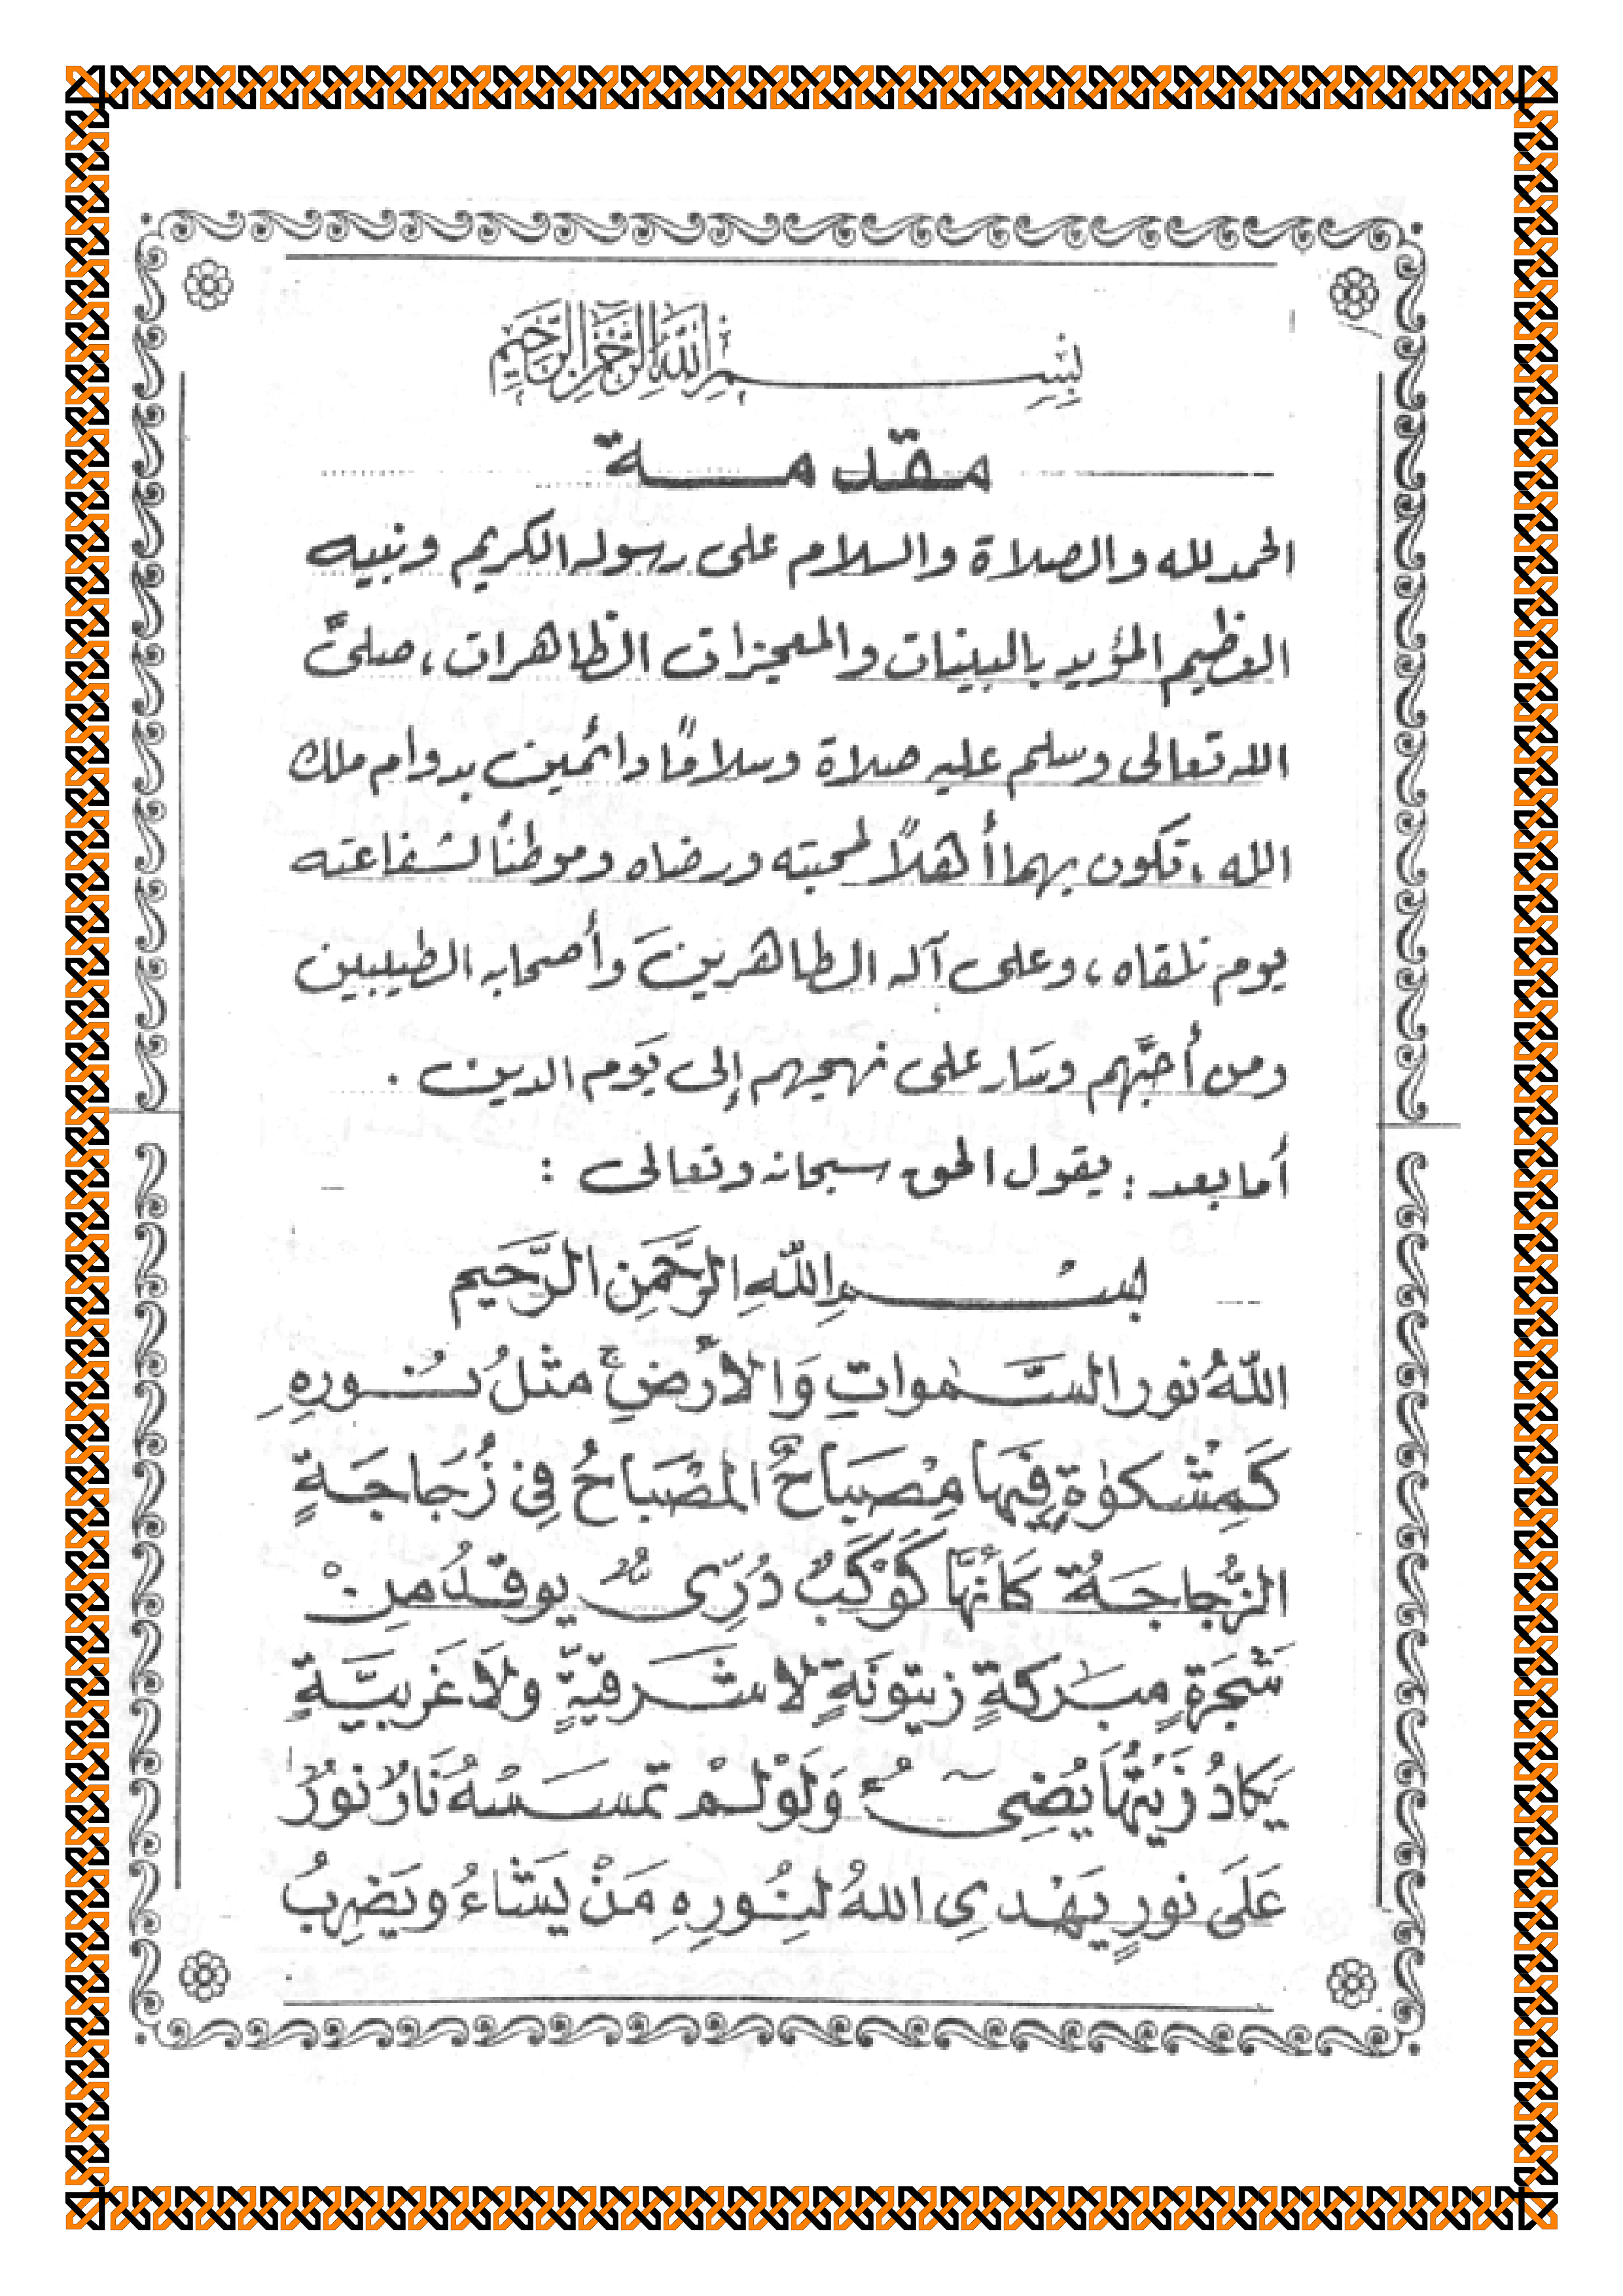 بِسْمِ اللَّهِ الرَّحْمَنِ الرَّحِيمِ
مقدمة
الحمد لله والصلاة والسلام على رسوله الكريم ونبيه
العظيم المؤيد بالبينات والمعجزات الظاهرات ، صلىَّ
الله تعالى وسلم عليه صلاة وسلامًا دائمين بدوام ملك
الله ، تكون بهما أهلاً لمحبته ورضاه وموطناً لشفاعته
يوم نلقاه ، وعلى آله الطاهرينَ وأصحابه الطيبين
ومن أحبَّهم وسَار على نهجهم إلى يَوم الدين .
أما بعد : يقول الحق سبحانه وتعالى :
بسْمِ اللهِ الرَّحمَنِ الرَّحَيم
اللهُ نور السَّمٰواتِ وَالأَرْضِ ۚ مثْلُ نُورِهِ
كَمِشْكوٰةٍ فِيَها مِصْبَاحٌ ۖ المصْبَاحُ فِى زُجَاجَةٍ
الزُّجاجَةُ كَأَنهَّا كَوْكَبٌ دُرِّىٌّ يوقدُ مِنْ
شَجَرَةٍ مبٰركةٍ زيتونَةٍ لا شَرقيَّةٍ ولَا غَربيَّةٍ
يَكادُ زَيْتُهَا يُضِىٓءُ وَلَوْ لمْ تمسَسْهُ نَارٌ نورٌ
عَلَى نورٍ يَهْدِى اللهُ لِنُورِهِ مَنْ يَشَاءُ ويَضِربُ